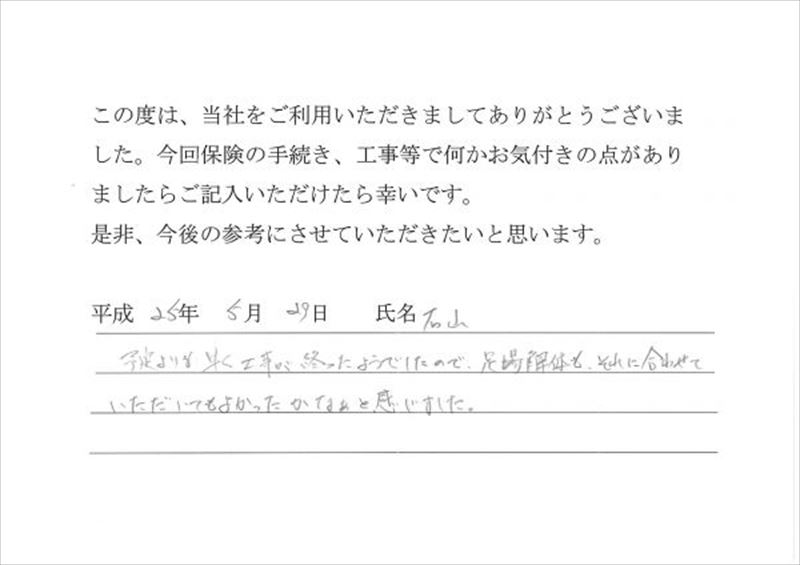 この度は、当社をご利用いただきましてありがとうございま
した。今回保険の手続き、工事等で何かお気付きの点があり
ましたらご記入いただけたら幸いです。
是非、今後の参考にさせていただきたいと思います。
平成 25年 5月 29日 氏名 石山
予定よりも早く工事が終ったようでしたので、足場解体も、それに合わせて
いただいてもよかったかなぁと感じました。